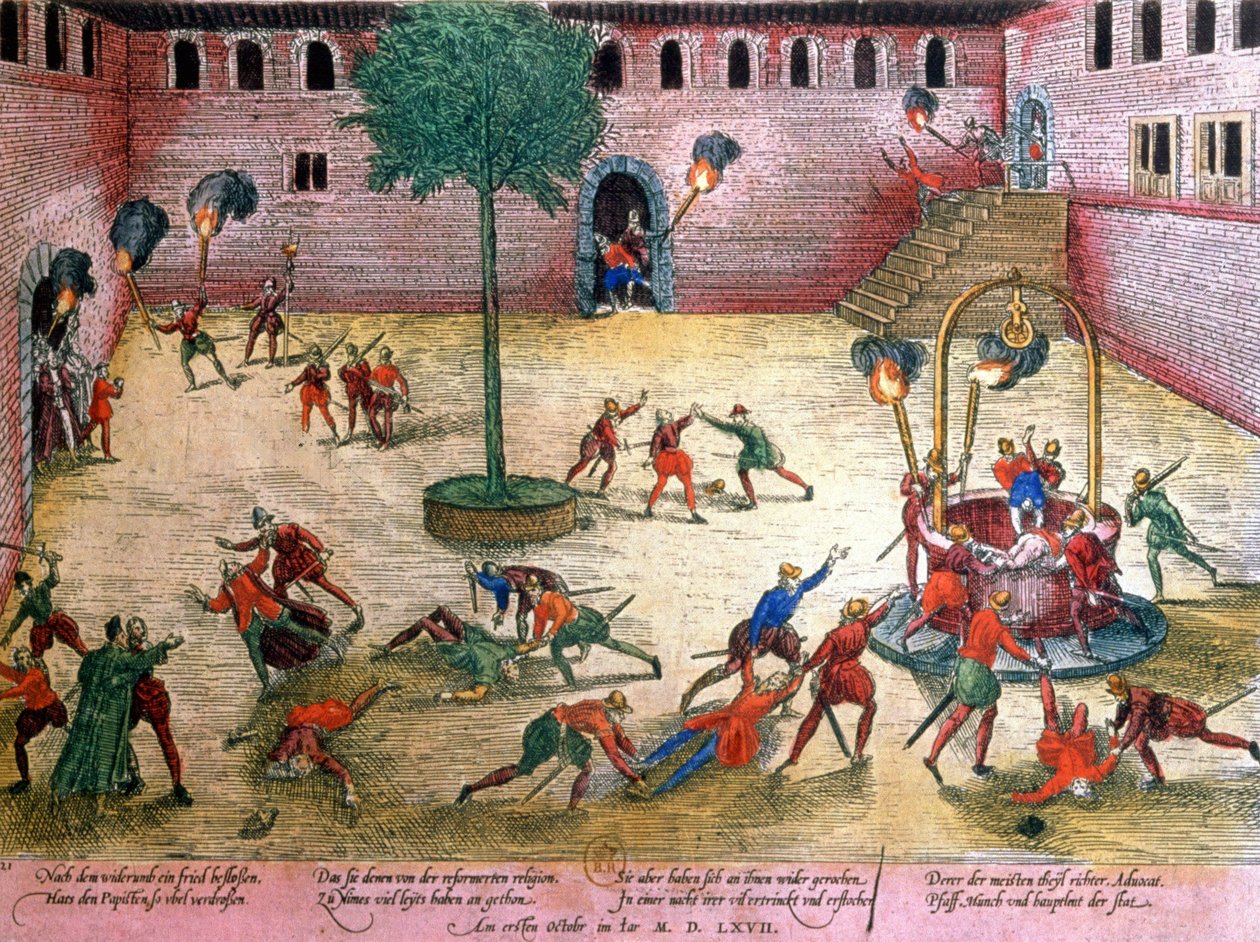 21
Nach dem widerumb ein fried besloßen,
Hats den Papisten so vbel verdroßen.
Das sie denen von der reformerten religion.
Zů Nimes viel leÿts haben an gethon.
Sie aber haben sich an ihnen wider gerochen
In einer nacht irer vil ertrinckt vnd erstochen
Derer der meisten theÿl richter, Aduocat.
Pfaff, Munch vnd hauptleut der stat.
Am ersten Octobr im Iar M. D. LXVII.
B.R